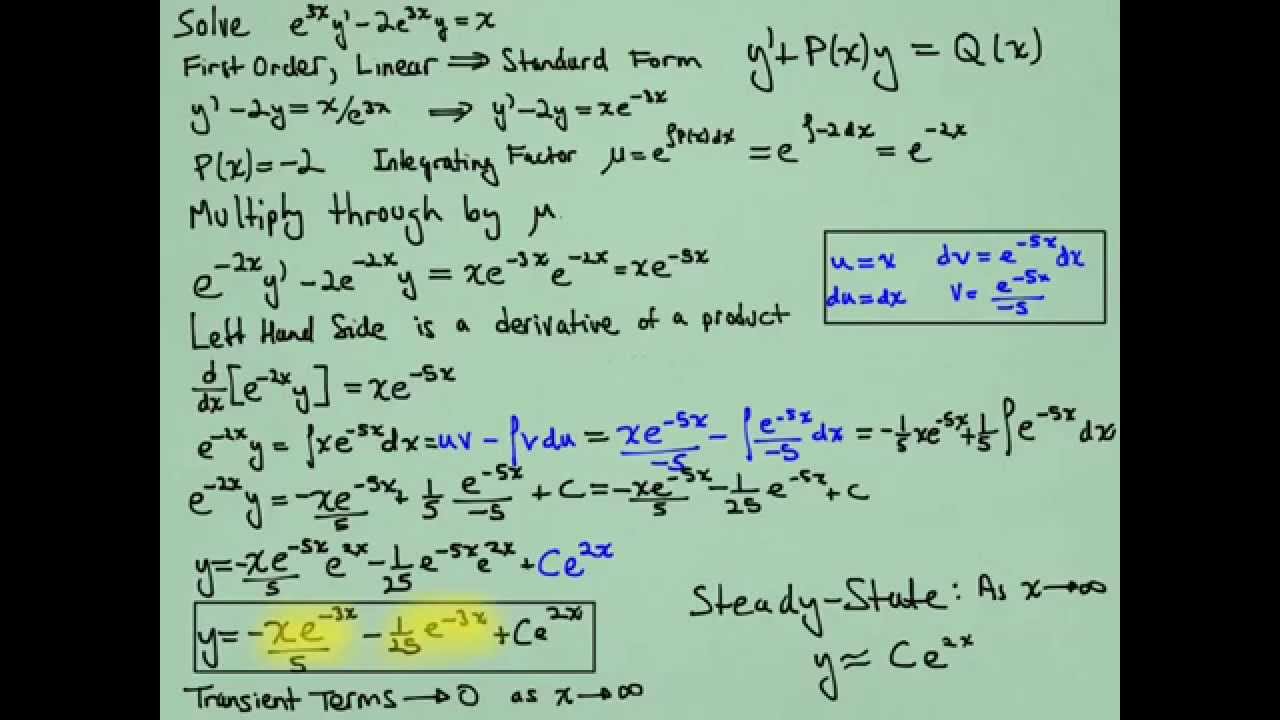 Solve e^{3x}y' - 2e^{3x}y = x
First Order, Linear ⟹ Standard Form y' + P(x)y = Q(x)
y' - 2y = x/e^{3x} ⟹ y' - 2y = xe^{-3x}
P(x) = -2 Integrating Factor μ = e^{∫P(x)dx} = e^{∫-2dx} = e^{-2x}
Multiply through by μ.
e^{-2x}y' - 2e^{-2x}y = xe^{-3x}e^{-2x} = xe^{-5x}
u = x dv = e^{-5x}dx
du = dx v = e^{-5x}/-5
Left Hand Side is a derivative of a product
d/dx[e^{-2x}y] = xe^{-5x}
e^{-2x}y = ∫xe^{-5x}dx = uv - ∫v du = xe^{-5x}/-5 - ∫e^{-5x}/-5 dx = -1/5 xe^{-5x} + 1/5 ∫e^{-5x}dx
e^{-2x}y = -xe^{-5x}/5 + 1/5 e^{-5x}/-5 + C = -xe^{-5x}/5 - 1/25 e^{-5x} + C
y = -xe^{-5x}/5 e^{2x} - 1/25 e^{-5x}e^{2x} + Ce^{2x}
y = -xe^{-3x}/5 - 1/25 e^{-3x} + Ce^{2x}
Transient Terms → 0 as x → ∞
Steady-State: As x → ∞
y ≈ Ce^{2x}